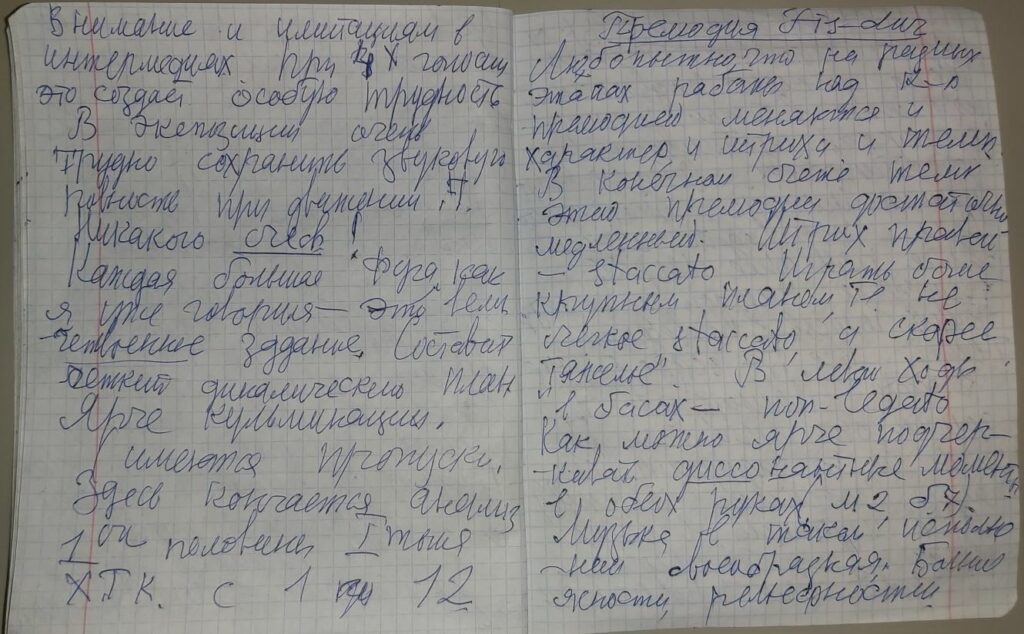 Внимание и имитациям в
интермедиях при 4х голосии
это создаёт особую трудность
В экспозиции очень
трудно сохранить звуковую
ровность при движении П.
Никакого
Каждая большая фуга, как
я уже говорил — это
задание. Составит
чёткий динамический план
Ярче кульминации.
имеются пропуски.
Здесь кончается анализ
1ой половины I тома
ХТК. с 1 12
Прелюдия Fis-dur
Любопытно, что на разных
этапах работы над
прелюдией меняются и
характер, и штрихи и темп.
В конечном счёте темп
этой прелюдии достаточно
медленный. Штрих правой
— staccato Играть более
крупным планом, те не
легкое staccato, а скорее
тяжелые" В левой ходы
в басах — non-legato
Как можно ярче подчёр-
-кивать диссонантные моменты
в обеих руках м2 б7
Музыка в таком исполне
-нии своеобразная. Больше
ясности, рельефности